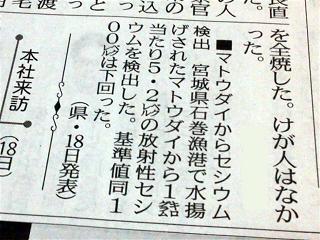 長直
の人
案官
込
毛
渡
を全焼した。けが人はなか
った。
■マトウダイからセシウム
検出　宮城県石巻漁港で水揚
げされたマトウダイから1㌔
当たり5・2㏃の放射性セシ
ウムを検出した。基準値同1
00㏃は下回った。
(県・18日発表)
本社来訪
(18日)